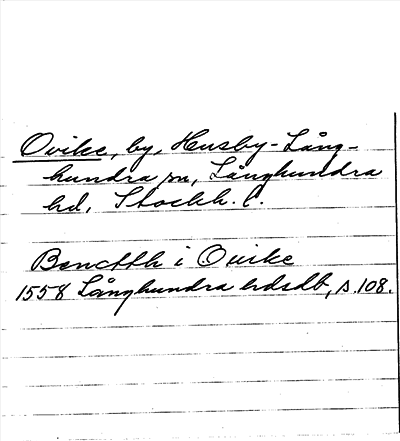 Ovike, by, Husby-Lång-
hundra sn, Långhundra
hd, Stockh. l.
Benctth i Ouike
1558 Långhundra hdsdb, s. 108.